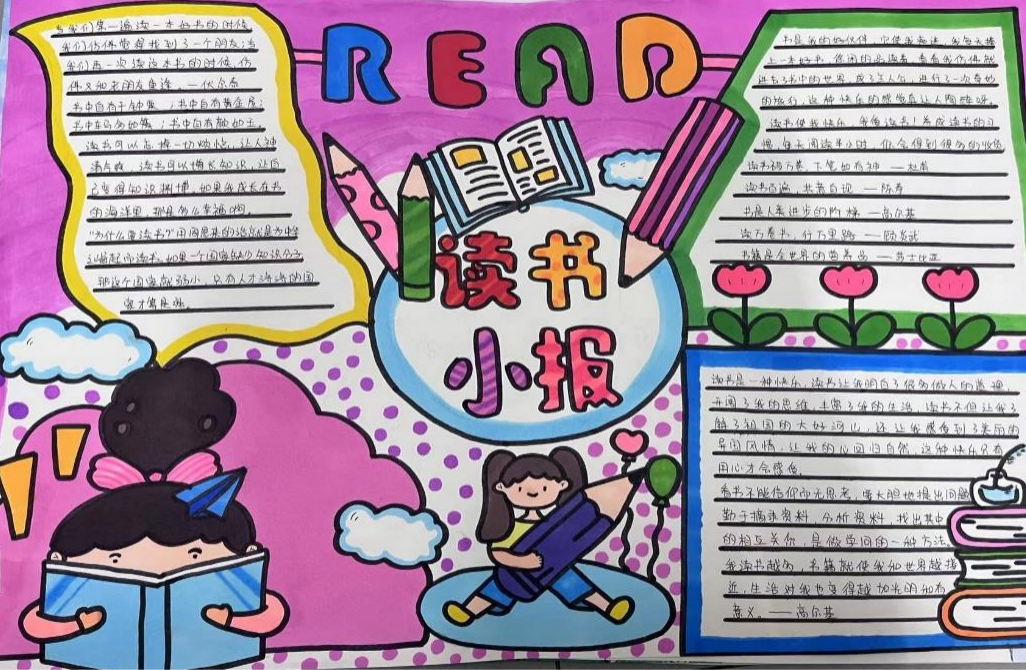 READ
读书
小报
当我们第一遍读一本好书的时候
我们仿佛觉得找到了一个朋友；当
我们再一次读这本书的时候，仿
佛又和老朋友重逢。—伏尔泰
书中自有千钟粟，书中自有黄金屋；
书中车马多如簇，书中自有颜如玉
读书可以忘掉一切烦恼，让人神
清气爽，读书可以增长知识，让自
己变得知识拥博，如果我成长在书
的海洋里，那是多么幸福啊。
"为什么要读书？"用周恩来的话就是为中华
崛起而读书。如果一个国家缺少知识分子
那这个国家就弱小，只有人才济济的国
家才算是强。
书是我的好伙伴，它使我着迷，我每天捧
上一本好书，悠闲的品读着，看着我仿佛就
进去了书中的世界，成了主人公，进行了一次奇妙
的旅行，这种快乐的感觉真让人陶醉呀。
读书使我快乐，我爱读书！养成读书的习
惯，每天阅读半小时，你会得到很多的收获
读书破万卷，下笔如有神 —杜甫
读书百遍，其义自现 —陈寿
书是人类进步的阶梯 —高尔基
读万卷书，行万里路 —顾炎武
书籍是全世界的营养品 —莎士比亚
读书是一种快乐，读书让我明白了很多做人的道理
开阔了我的思维，丰富了我的生活，读书不但让我了
解了祖国的大好河山，还让我感受到了美丽的
异国风情，让我的心回归自然，这种快乐只有
用心才会感受。
看书不能信仰而无思考，要大胆地提出问题
勤于摘录资料，分析资料，找出其中
的相互关係，是做学问的一种方法。
我读书越多，书籍就使我和世界越接
近，生活对我也变得越加光明和有
意义。——高尔基